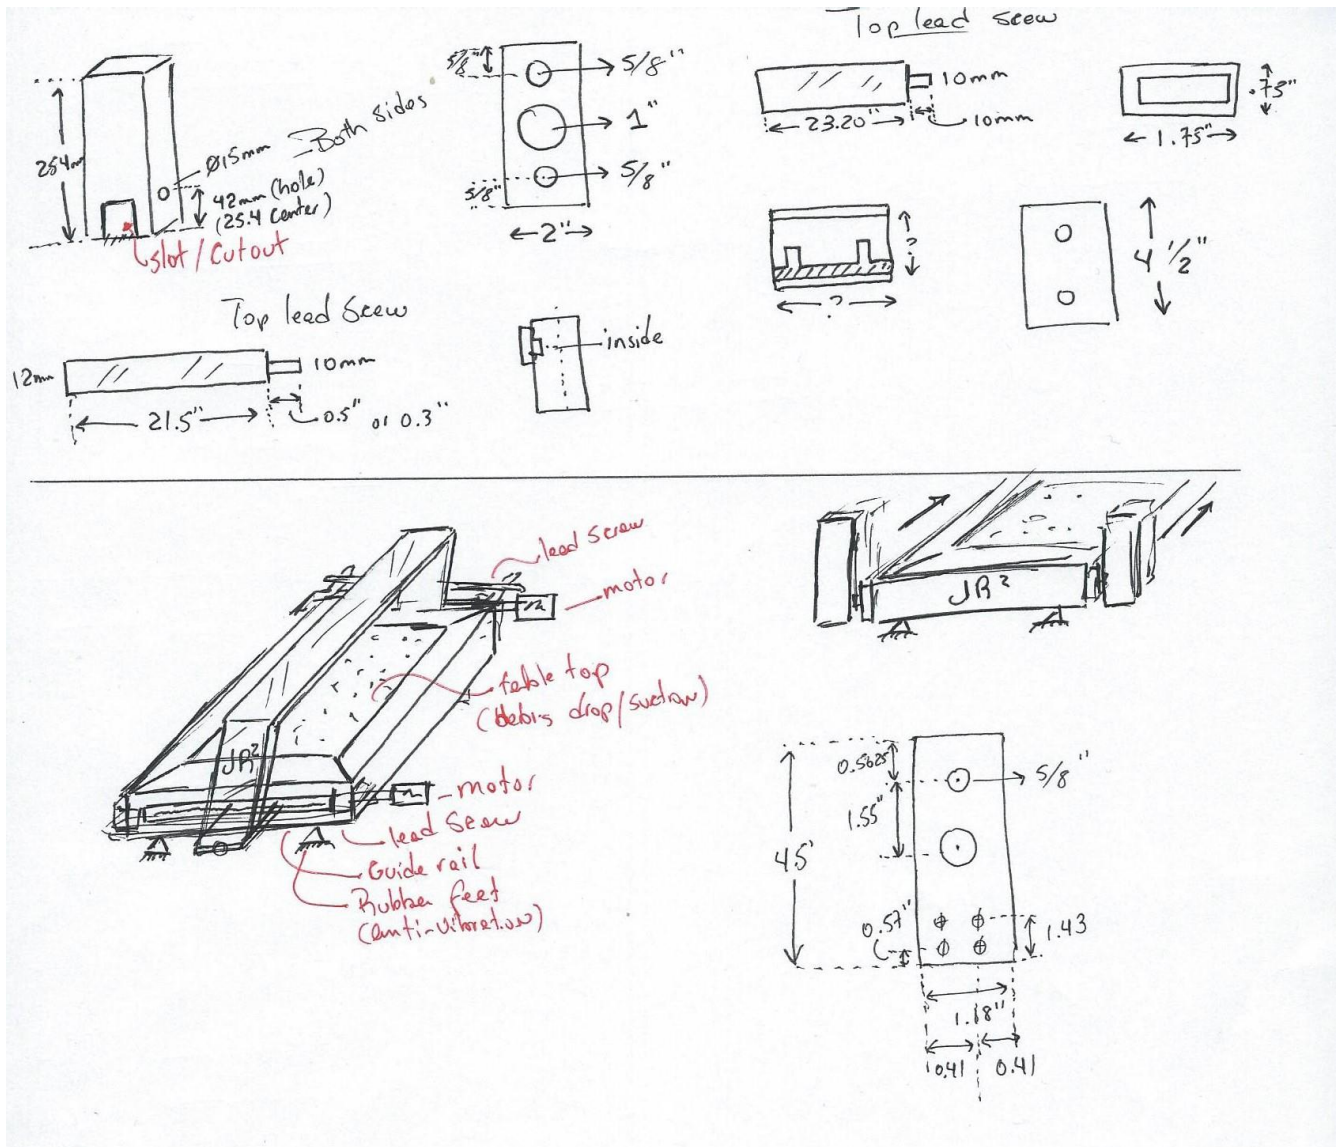 Top lead scew
254mm
Ø15mm
Both sides
42mm (hole)
(25.4 center)
slot/Cutout
5/8"
5/8"
1"
5/8"
5/8"
2"
10mm
23.20"
10mm
.75"
1.75"
?
?
4 1/2"
Top lead Scew
12mm
10mm
21.5"
0.5" or 0.3"
inside
lead screw
motor
table top
(debris drop/suction)
JR²
motor
lead scew
Guide rail
Rubber feet
(anti-vibration)
JR²
0.5625
5/8"
1.55"
4.5'
0.57"
1.43
1.18"
0.41
0.41